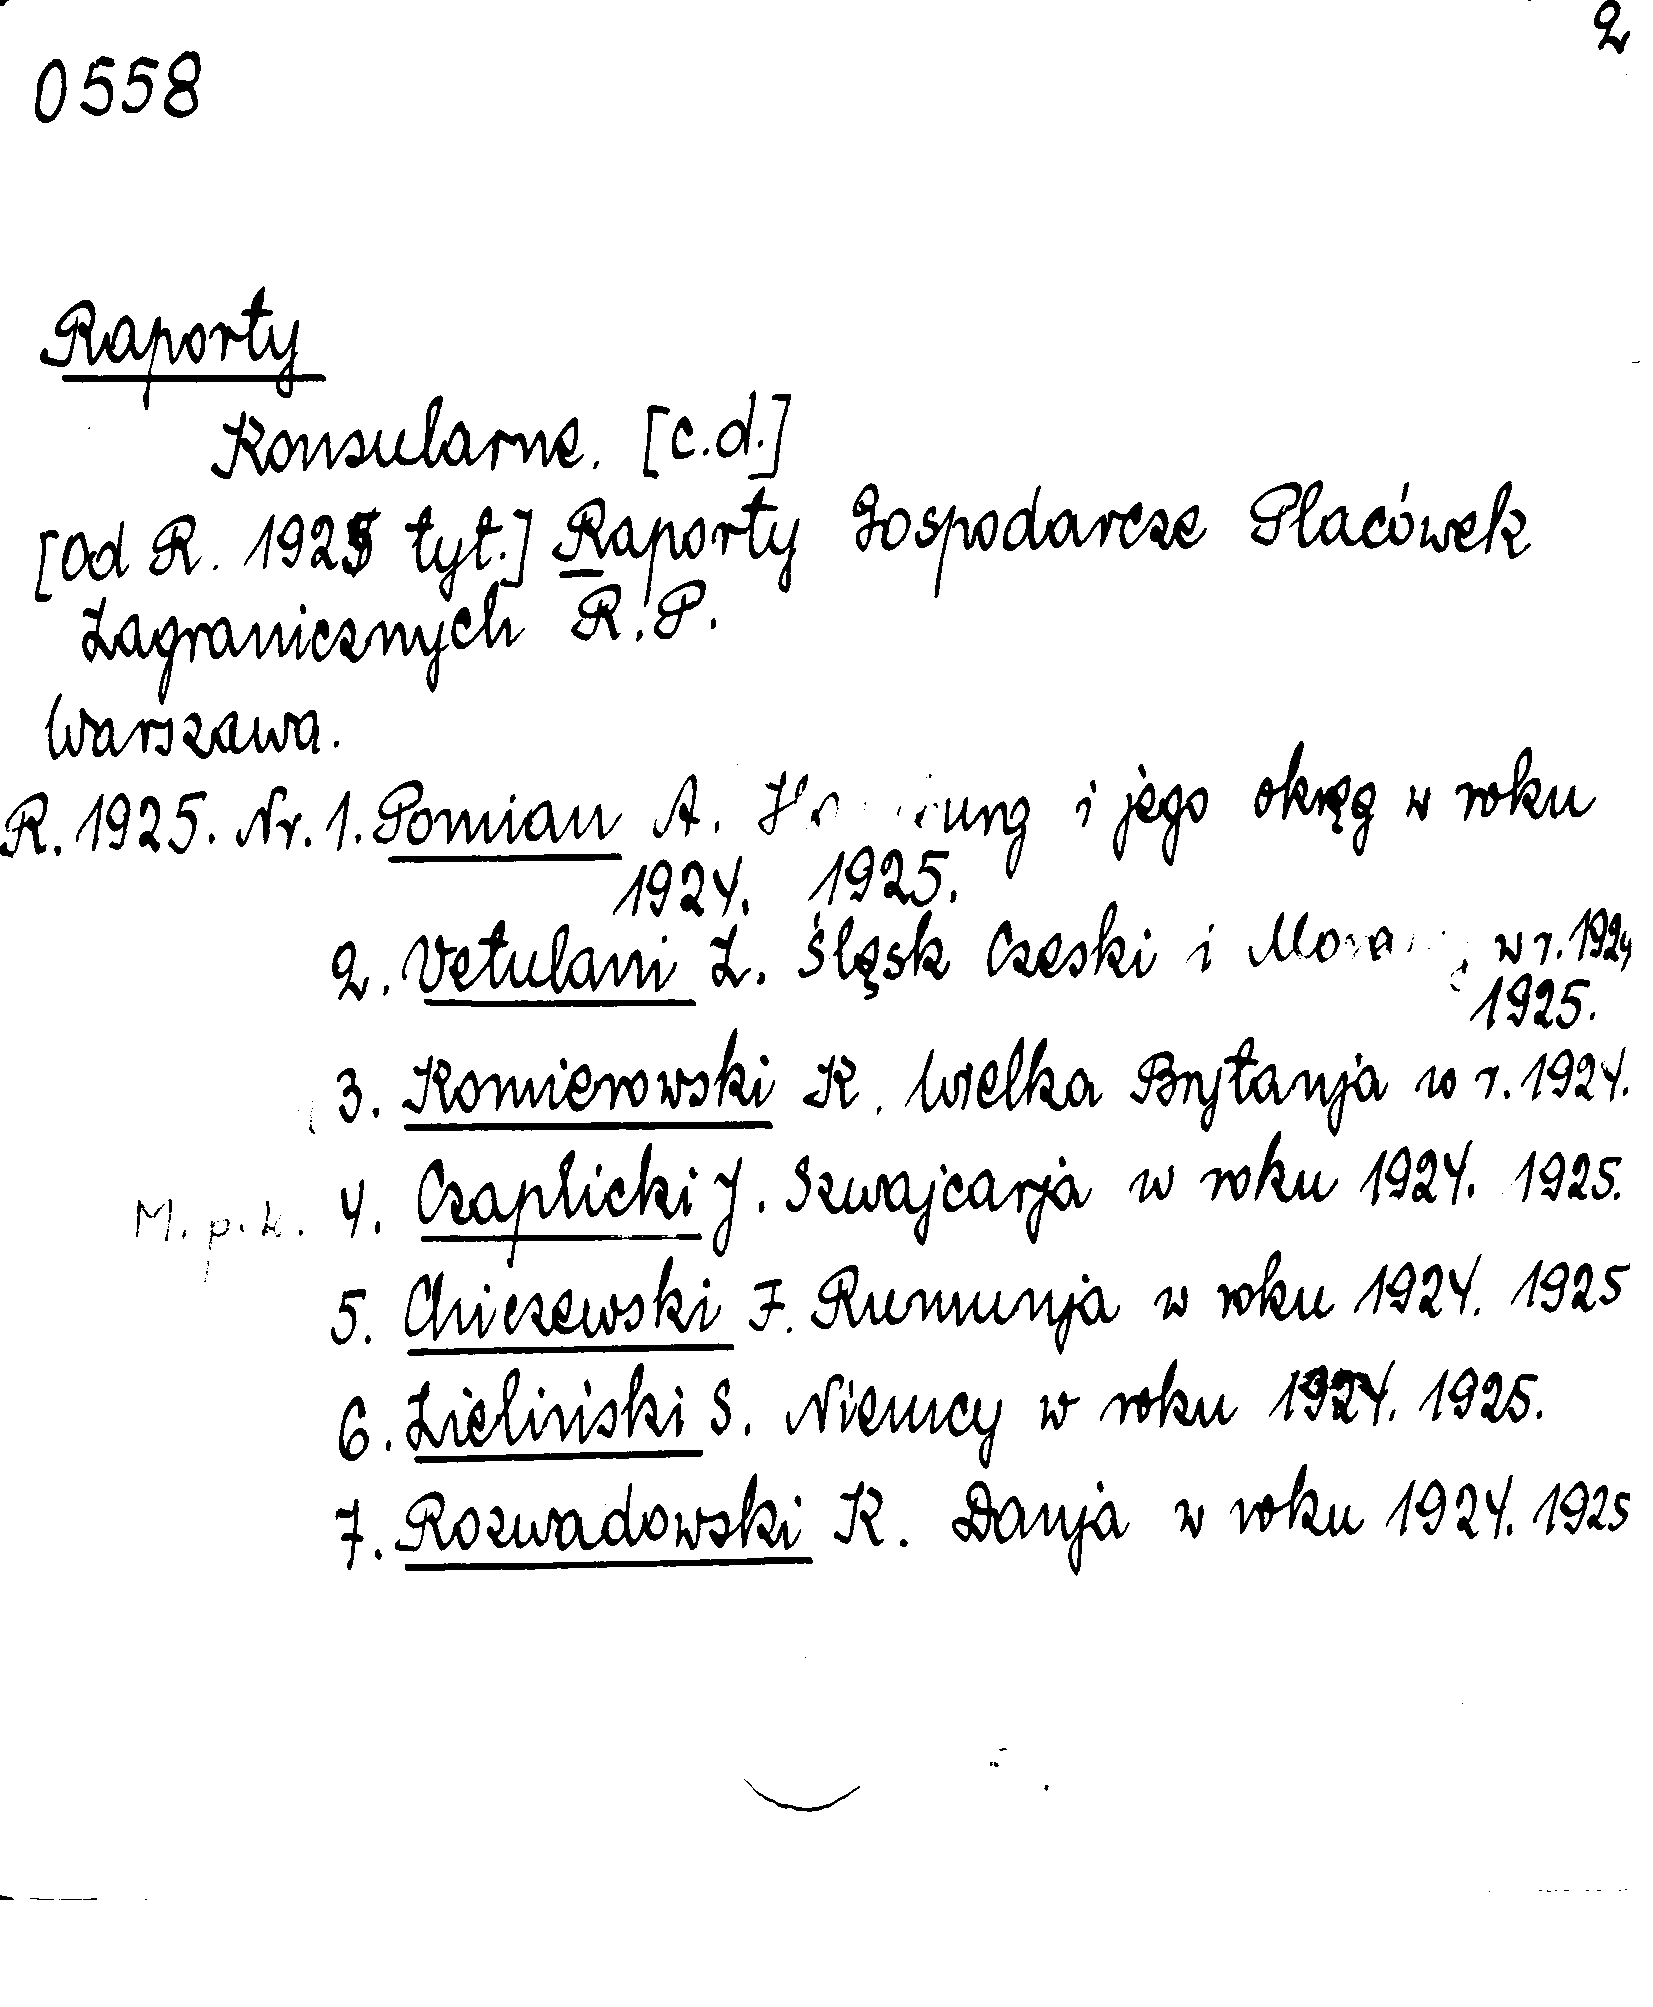 2
0558
Raporty
Konsularne. [c.d.]
[od R. 1925 tyt.] Raporty Gospodarcze Placówek
Zagranicznych R.P.
Warszawa.
R. 1925. Nr. 1. Pomian A. i jego okręg w roku
1924. 1925.
2. Vetulani Z. Śląsk Czeski i w r. 1924
1925.
3. Komierowski K. Wielka Brytanja w r. 1924.
M. p. k. 4. Czaplicki J. Szwajcarja w roku 1924. 1925.
5. Chiczewski F. Rumunja w roku 1924. 1925
6. Zieliński S. Niemcy w roku 1924. 1925.
7. Rozwadowski K. Danja w roku 1924. 1925